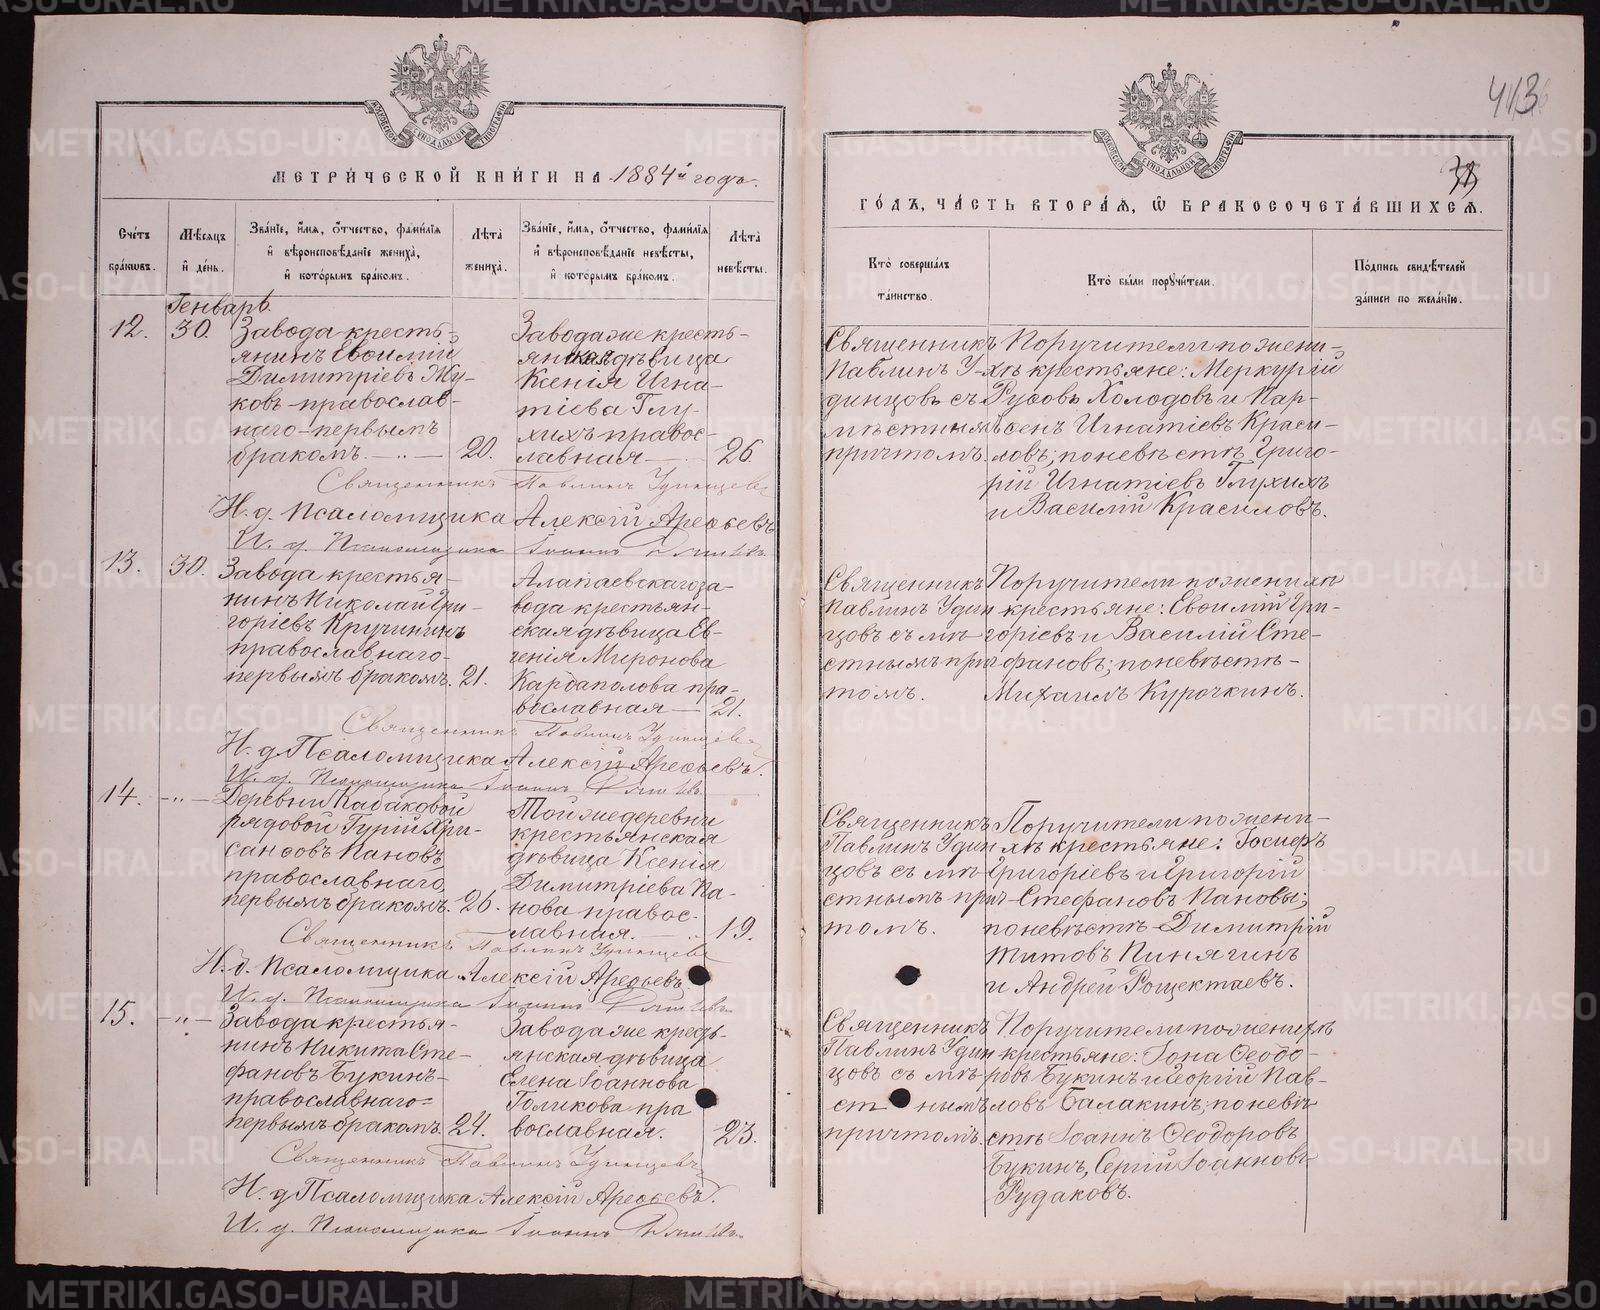 МЕТРИЧЕСКОЙ КНИГИ НА 1884й годъ.
Счетъ браковъ.
Мѣсяцъ и день.
Званіе, имя, отчество, фамилія и вѣроисповѣданіе жениха, и которымъ бракомъ.
Лѣта жениха.
Званіе, имя, отчество, фамилія и вѣроисповѣданіе невѣсты, и которымъ бракомъ.
Лѣта невѣсты.
Генварь.
12.
30.
Завода кресть-
янинъ Евфимій
Димитріевъ Жу-
ковъ-православ-
наго-первымъ
бракомъ.
20.
Заводаже кресть-
янская дѣвица
Ксенія Игна-
тіева Глу-
хихъ правос-
лавная
26
Священникъ Павлинъ Удинцевъ
И. д. Псаломщика Алексій Арефьевъ
И. д. Псаломщика Іоаннъ
13.
30.
Завода крестья-
нинъ Николай Гри-
горіевъ Кручининъ
православнаго-
первымъ бракомъ.
21.
Алапаевскагоза-
вода крестьян-
ская дѣвица Ев-
генія Миронова
Кардаполова пра-
вославная
21.
Священникъ Павлинъ Удинцевъ
И. д. Псаломщика Алексій Арефьевъ.
И. д. Псаломщика Іоаннъ
14.
-"-
Деревни Кабаковой
рядовой Гурій Хри-
санфовъ Пановъ
православнаго
первымъ бракомъ.
26.
Тойжедеревни
крестьянская
дѣвица Ксенія
Димитріева Па-
нова правос-
лавная.
19.
Священникъ Павлинъ Удинцевъ
И. д. Псаломщика Алексій Арефьевъ
И. д. Псаломщика Іоаннъ
15.
-"-
Завода крестья-
нинъ Никита Сте-
фановъ Букинъ-
православнаго=
первымъ бракомъ.
24.
Заводаже кресть-
янская дѣвица
Елена Іоаннова
Голикова пра
вославная.
23.
Священникъ Павлинъ Удинцевъ
И. д Псаломщика Алексій Арефьевъ.
И. д. Псаломщика Іоаннъ
413
ГОДЪ, ЧАСТЬ ВТОРАЯ, Ѡ БРАКОСОЧЕТАВШИХСЯ.
Кто совершалъ таинство.
Кто были поручители.
Подпись свидѣтелей записи по желанію.
Священникъ
Павлинъ У-
динцовъ съ
мѣстнымъ
причтомъ.
Поручители по жени-
хѣ крестьяне: Меркурій
Руфовъ Холодовъ и Пар-
фенъ Игнатіевъ Краси-
ловъ; по невѣстѣ Григо-
рій Игнатіевъ Глухихъ
и Василій Красиловъ.
Священникъ
Павлинъ Удин
цовъ съ мѣ-
стнымъ при-
томъ.
Поручители по женихѣ
крестьяне: Евфимій Гри-
горіевъ и Василій Сте-
фановъ; по невѣстѣ-
Михаилъ Курочкинъ.
Священникъ
Павлинъ Удин
цовъ съ мѣ-
стнымъ прич-
томъ.
Поручители по жени-
хѣ крестьяне: Іосифъ
Григоріевъ и Григорій
Стефановъ Пановы;
по невѣстѣ-Димитрій
Титовъ Пинягинъ
и Андрей Рощектаевъ.
Священникъ
Павлинъ Удин
цовъ съ мѣ
стнымъ
причтомъ.
Поручители по женихѣ
крестьяне: Іона Ѳеодо-
ровъ Букинъ и Георгій Пав-
ловъ Балакинъ; по невѣ-
стѣ Іоаннъ Ѳеодоровъ
Букинъ, Сергій Іоанновъ
Рудаковъ.
METRIKI.GASO-URAL.RU